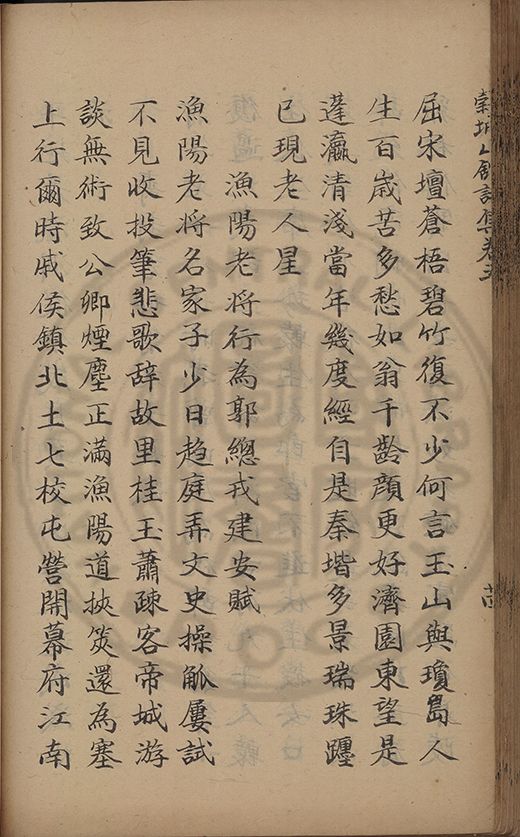 屈宋壇蒼梧碧竹復不少何言玉山與瓊島人
生百歲苦多愁如翁千齡顏更好濟園東望是
蓬瀛清淺當年幾度經自是秦堦多景瑞珠躔
已現老人星
漁陽老將行為郭總戎建安賦
漁陽老將名家子少日趨庭弄文史操觚屢試
不見收投筆悲歌辭故里桂玉蕭疎客帝城游
談無術致公卿煙塵正滿漁陽道挾筴還為塞
上行爾時戚侯鎮北土七校屯營開幕府江南